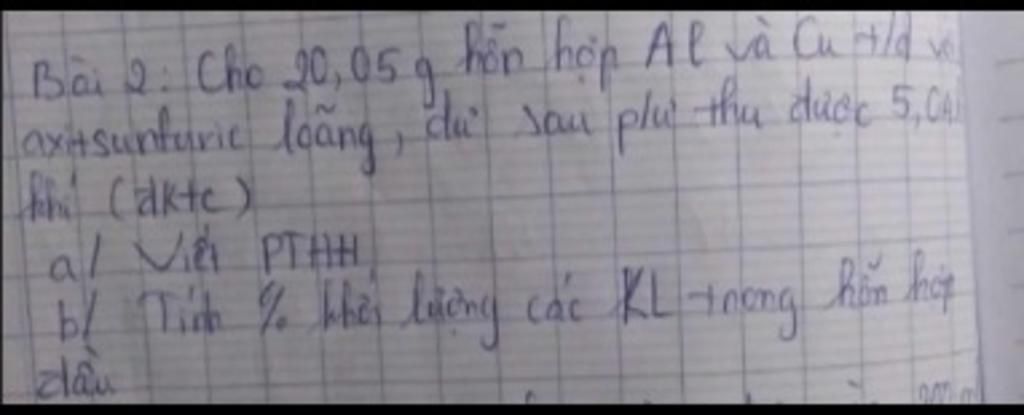 Bài 2: Cho 20,05 g hỗn hợp Al và Cu t/d
axit sunfuric loãng, dư sau pứ thu được 5,04
khí (đktc)
a/ Viết PTHH
b/ Tính % khối lượng các KL trong hỗn hợp
đầu